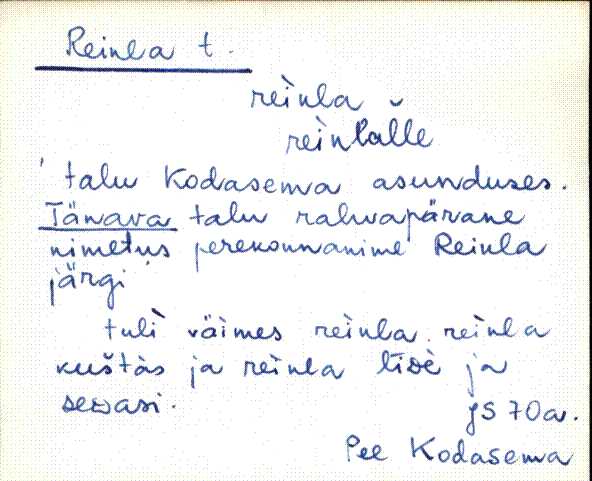 Reinla t.
reìnla
reìnlăl̆le
' talu Kodasema asunduses.
Tänava talu rahvapärane
nimetus perekonnanime Reinla
järgi
tuli väimes reìnla. reìnla
kuštàs ja reìnla ja
sewasi.
JS 70a.
Pee Kodasema